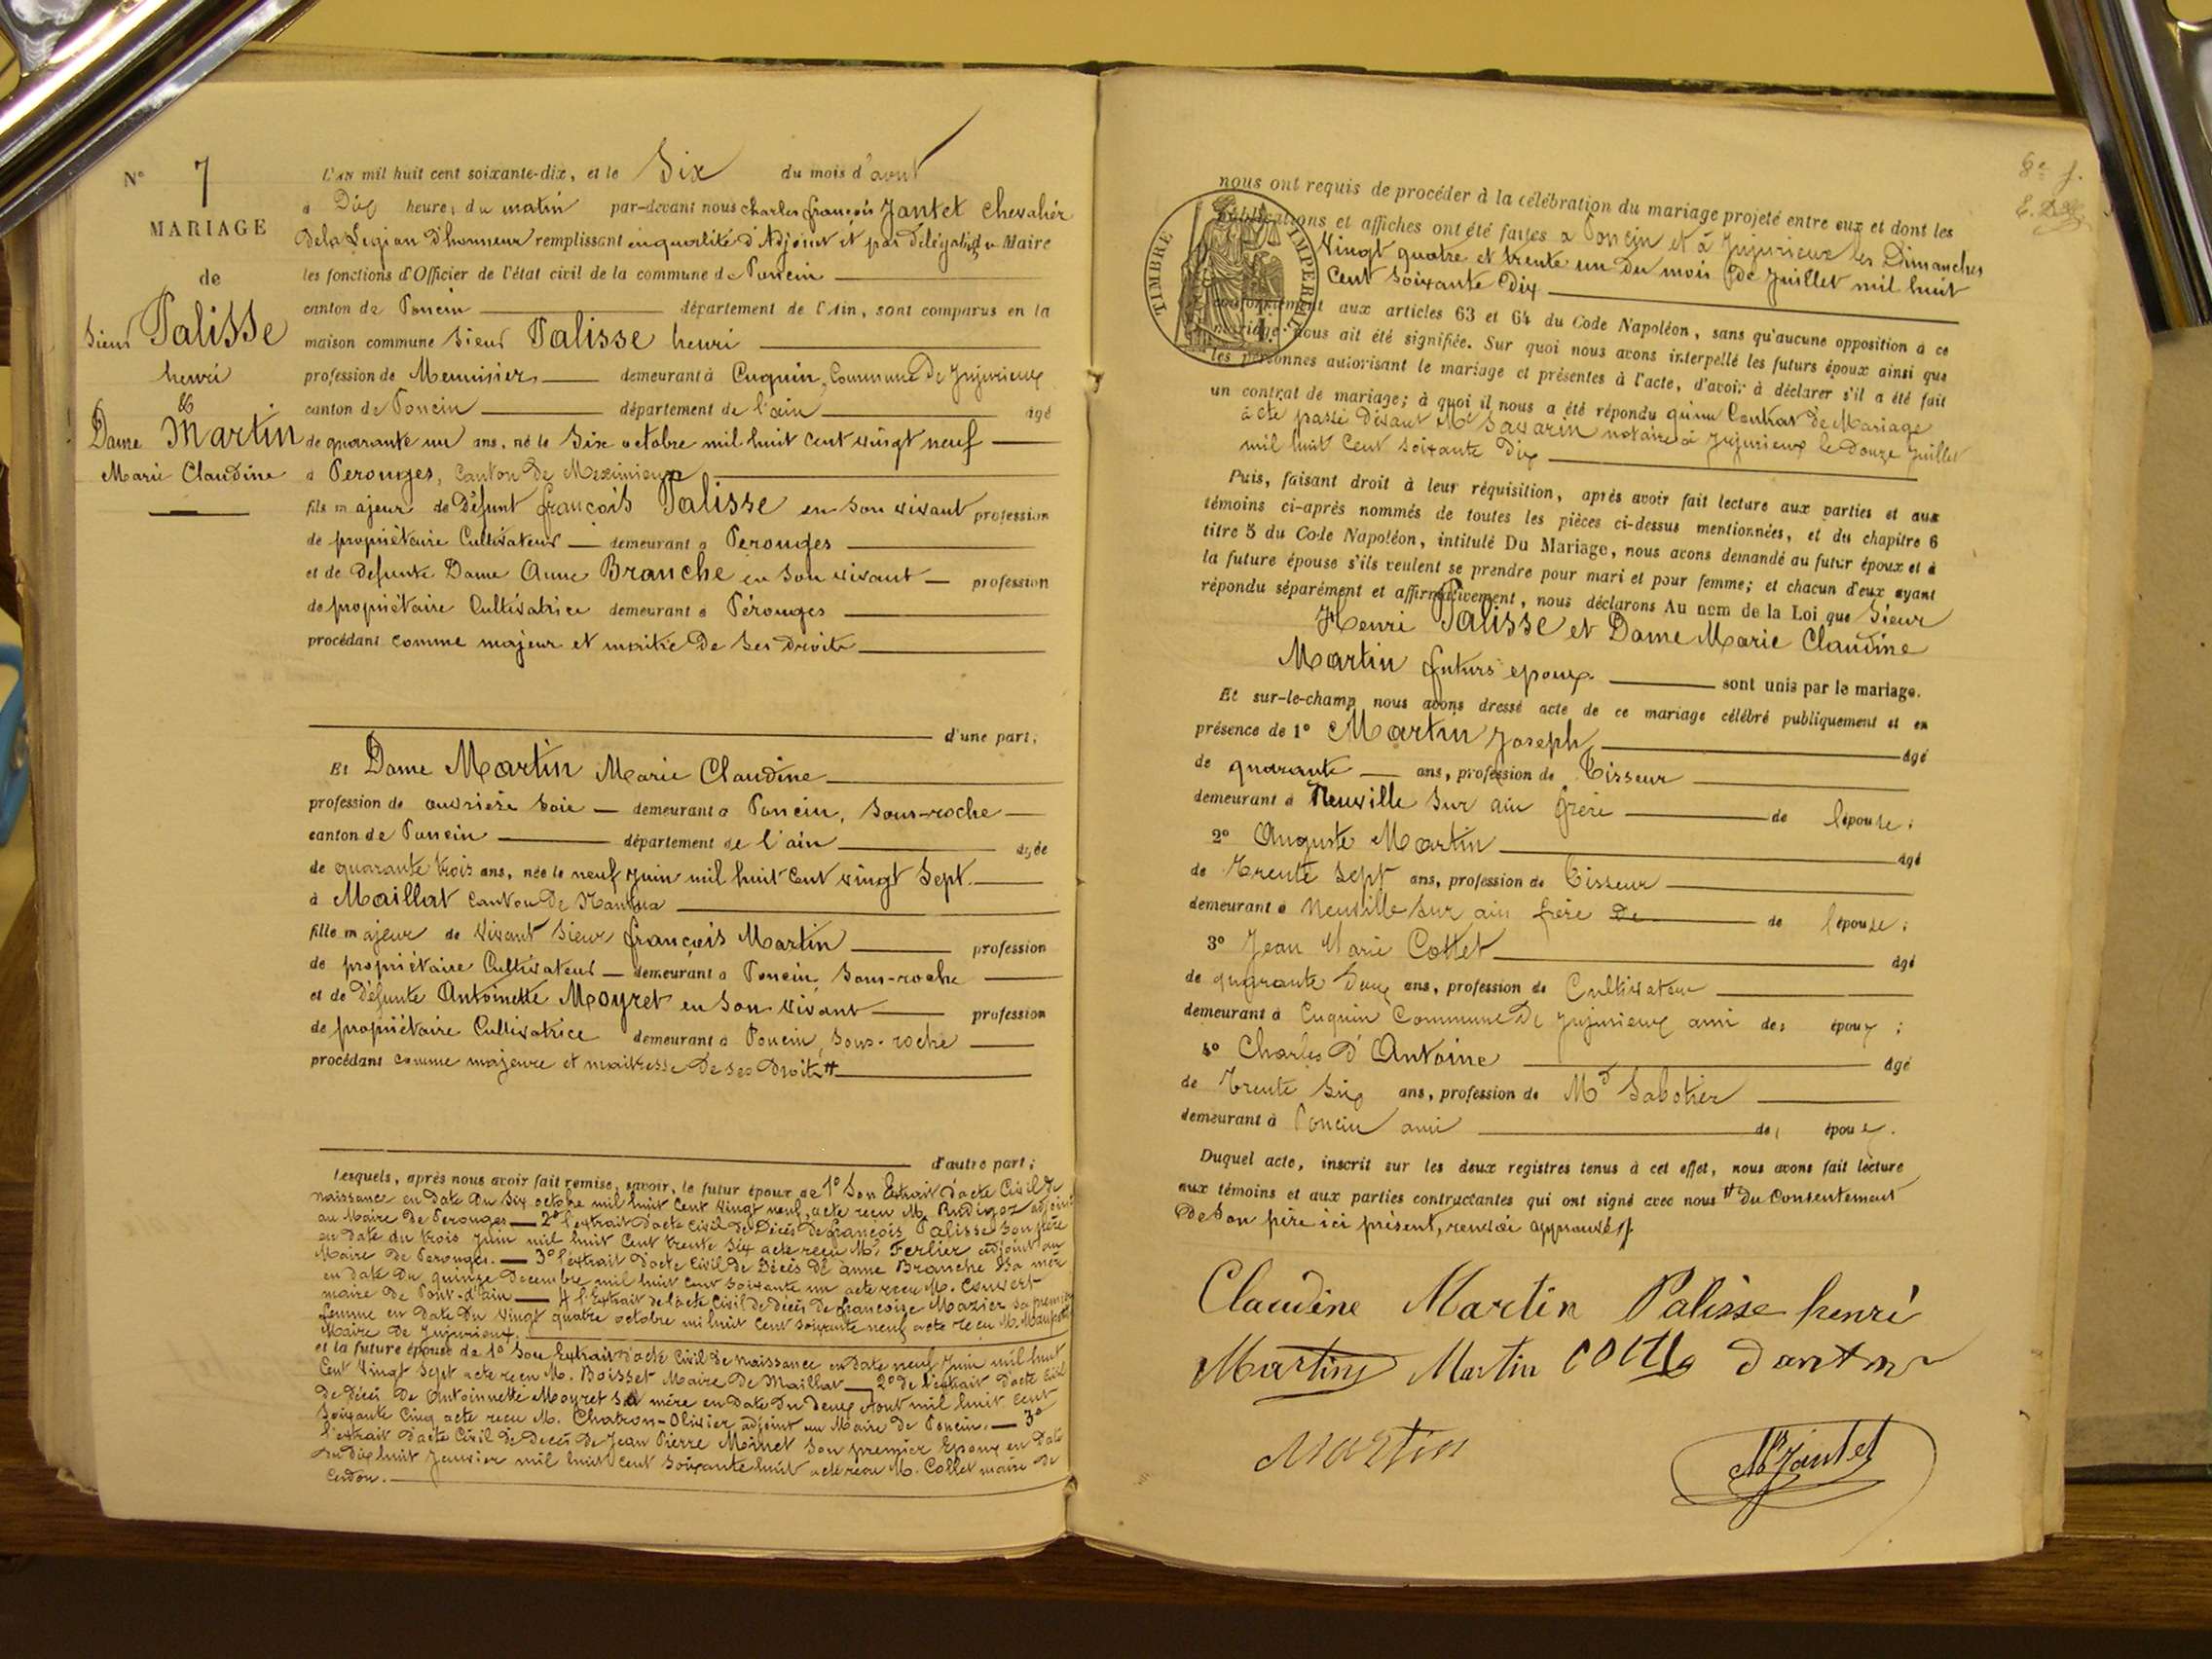 N° 7
MARIAGE
de
Sieur Palisse
henri
&
Dame Martin
Marie Claudine
L'AN mil huit cent soixante-dix, et le Six du mois d'aout
à Dix heures du matin par-devant nous charles françois Jantet chevalier
De la Legion d'honneur remplissant en qualité d'Adjoint et par délégation du Maire
les fonctions d'Officier de l'état civil de la commune de Poncin
canton de Poncin département de l'Ain, sont comparus en la
maison commune Sieur Palisse henri
profession de Menuisier demeurant à Cuquin, Commune de Jujurieux
canton de Poncin département de l'ain âgé
de quarante un ans, né le Six octobre mil huit cent vingt neuf
à Perouges, Canton de Meximieux
fils majeur de Défunt françois Palisse en son vivant profession
de propriétaire Cultivateur demeurant à Perouges
et de Défunte Dame Anne Branche en son vivant profession
de propriétaire Cultivatrice demeurant à Pérouges
procédant comme majeur et maitre De Ses Droits
d'une part;
Et Dame Martin Marie Claudine
profession de ouvrière Soie demeurant à Poncin, Sous-roche
canton de Poncin département de l'ain âgée
de quarante trois ans, née le neuf Juin mil huit Cent vingt Sept
à Maillat Canton De Nantua
fille majeur de Vivant Sieur françois Martin profession
de propriétaire Cultivateur demeurant à Poncin, Sous-roche
et de Défunte Antoinette Moyret en Son vivant profession
de propriétaire Cultivatrice demeurant à Poncin, Sous-roche
procédant comme majeure et maitresse De Ses Droits #
d'autre part;
Lesquels, après nous avoir fait remise, savoir, le futur époux de 1° Son Extrait d'acte Civil de
naissance en Date du Six octobre mil huit Cent Vingt neuf, acte recu M. Rudigoz adjoint
au Maire de Perouges — 2° l'extrait d'acte Civil de Décès de françois Palisse Son père
en Date du trois Juin mil huit Cent trente Six acte recu M. Ferlier adjoint au
Maire de Perouges. — 3° l'extrait d'acte Civil de Décès de anne Branche Sa mère
en Date du quinze Decembre mil huit Cent Soixante un acte recu M. Convert
maire De Pont-d'ain — 4 l'Extrait de l'acte Civil de décès de francoise Mazier Sa première
femme en Date Du Vingt quatre octobre mil huit Cent Soixante neuf acte recu M.
Maire De Jujurieux.
et la future épouse de 1° Son Extrait d'acte Civil De naissance en Date neuf Juin mil huit
Cent Vingt Sept acte recu M. Boisset Maire De Maillat — 2° de l'extrait d'acte Civil
De décès De Antoinnette Moyret Sa mère en Date Du Deux Aout mil huit Cent
Soixante Cinq acte recu M. Chatron-Olivier adjoint au Maire de Poncin. — 3°
l'extrait d'acte Civil de Décès De Jean Pierre Moinet Son premier Epoux en Date
du Dix huit Janvier mil huit Cent Soixante huit acte recu M. Collet maire De
Cerdon.
8e f.
nous ont requis de procéder à la célébration du mariage projeté entre eux et dont les
publications et affiches ont été faites à Poncin et à Jujurieux les Dimanches
Vingt quatre et trente un Du mois De Juillet mil huit
Cent Soixante Dix
conformément aux articles 63 et 64 du Code Napoléon, sans qu'aucune opposition à ce
mariage nous ait été signifiée. Sur quoi nous avons interpellé les futurs époux ainsi que
les personnes autorisant le mariage et présentes à l'acte, d'avoir à déclarer s'il a été fait
un contrat de mariage; à quoi il nous a été répondu qu'un Contrat De Mariage
acte passé Devant Me Savarin notaire à Jujurieux le Douze Juillet
mil huit Cent Soixante Dix
TIMBRE IMPERIAL
Puis, faisant droit à leur réquisition, après avoir fait lecture aux parties et aux
témoins ci-après nommés de toutes les pièces ci-dessus mentionnées, et du chapitre 6
titre 5 du Code Napoléon, intitulé Du Mariage, nous avons demandé au futur époux et à
la future épouse s'ils veulent se prendre pour mari et pour femme; et chacun d'eux ayant
répondu séparément et affirmativement, nous déclarons Au nom de la Loi que Sieur
Henri Palisse et Dame Marie Claudine
Martin futurs epoux sont unis par le mariage.
Et sur-le-champ nous avons dressé acte de ce mariage célébré publiquement et en
présence de 1° Martin Joseph âgé
de quarante ans, profession de Tisseur
demeurant à Neuville Sur ain frère de l'épouse;
2° Auguste Martin âgé
de Trente Sept ans, profession de Tisseur
demeurant à Neuville Sur ain frère De de l'épouse;
3° Jean Marie Cottet âgé
de quarante Deux ans, profession de Cultivateur
demeurant à Cuquin Commune De Jujurieux ami des époux;
4° Charles D'Antoine âgé
de Trente Six ans, profession de Md Sabotier
demeurant à Poncin ami des époux.
Duquel acte, inscrit sur les deux registres tenus à cet effet, nous avons fait lecture
aux témoins et aux parties contractantes qui ont signé avec nous # Du Consentement
De Son père ici présent, renvoi approuvé
Claudine Martin Palisse henri
Martin Martin
Martin
Jantet